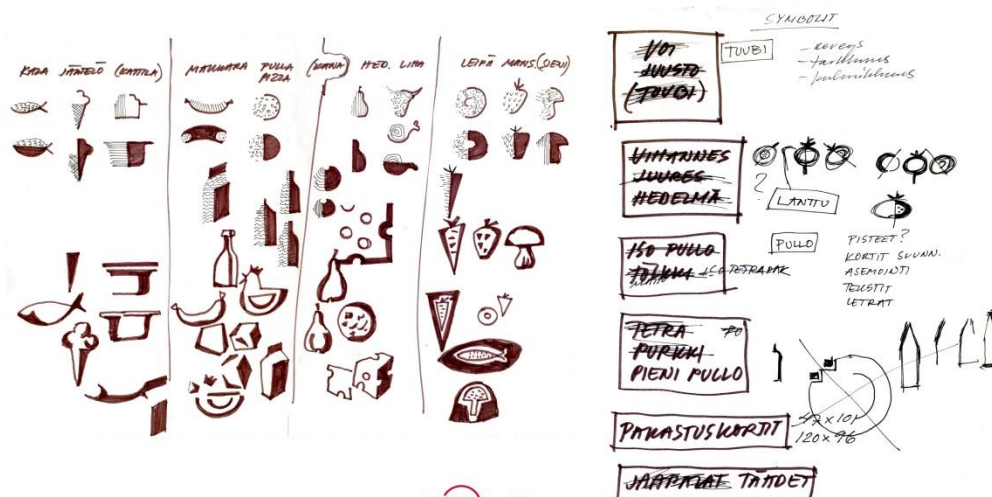 KALA JÄÄTELÖ (KATTILA)
MAKKARA PULLA
PIZZA
(KANA) HED. LIHA
LEIPÄ MANS. (SIENI)
SYMBOLIT
VOI
JUUSTO
(TUUBI)
TUUBI
- keveys
VIHANNES
JUURES
HEDELMÄ
?
LANTTU
ISO PULLO
TÖLKKI ISO TETRAPAK
PULLO
PISTEET?
KORTIT SUUNN.
ASEMOINTI
TEKSTIT
LETRAT
TETRA
PURKKI
PIENI PULLO
PAKASTUSKORTIT
120 x 96
JÄÄPALAT TÄHDET